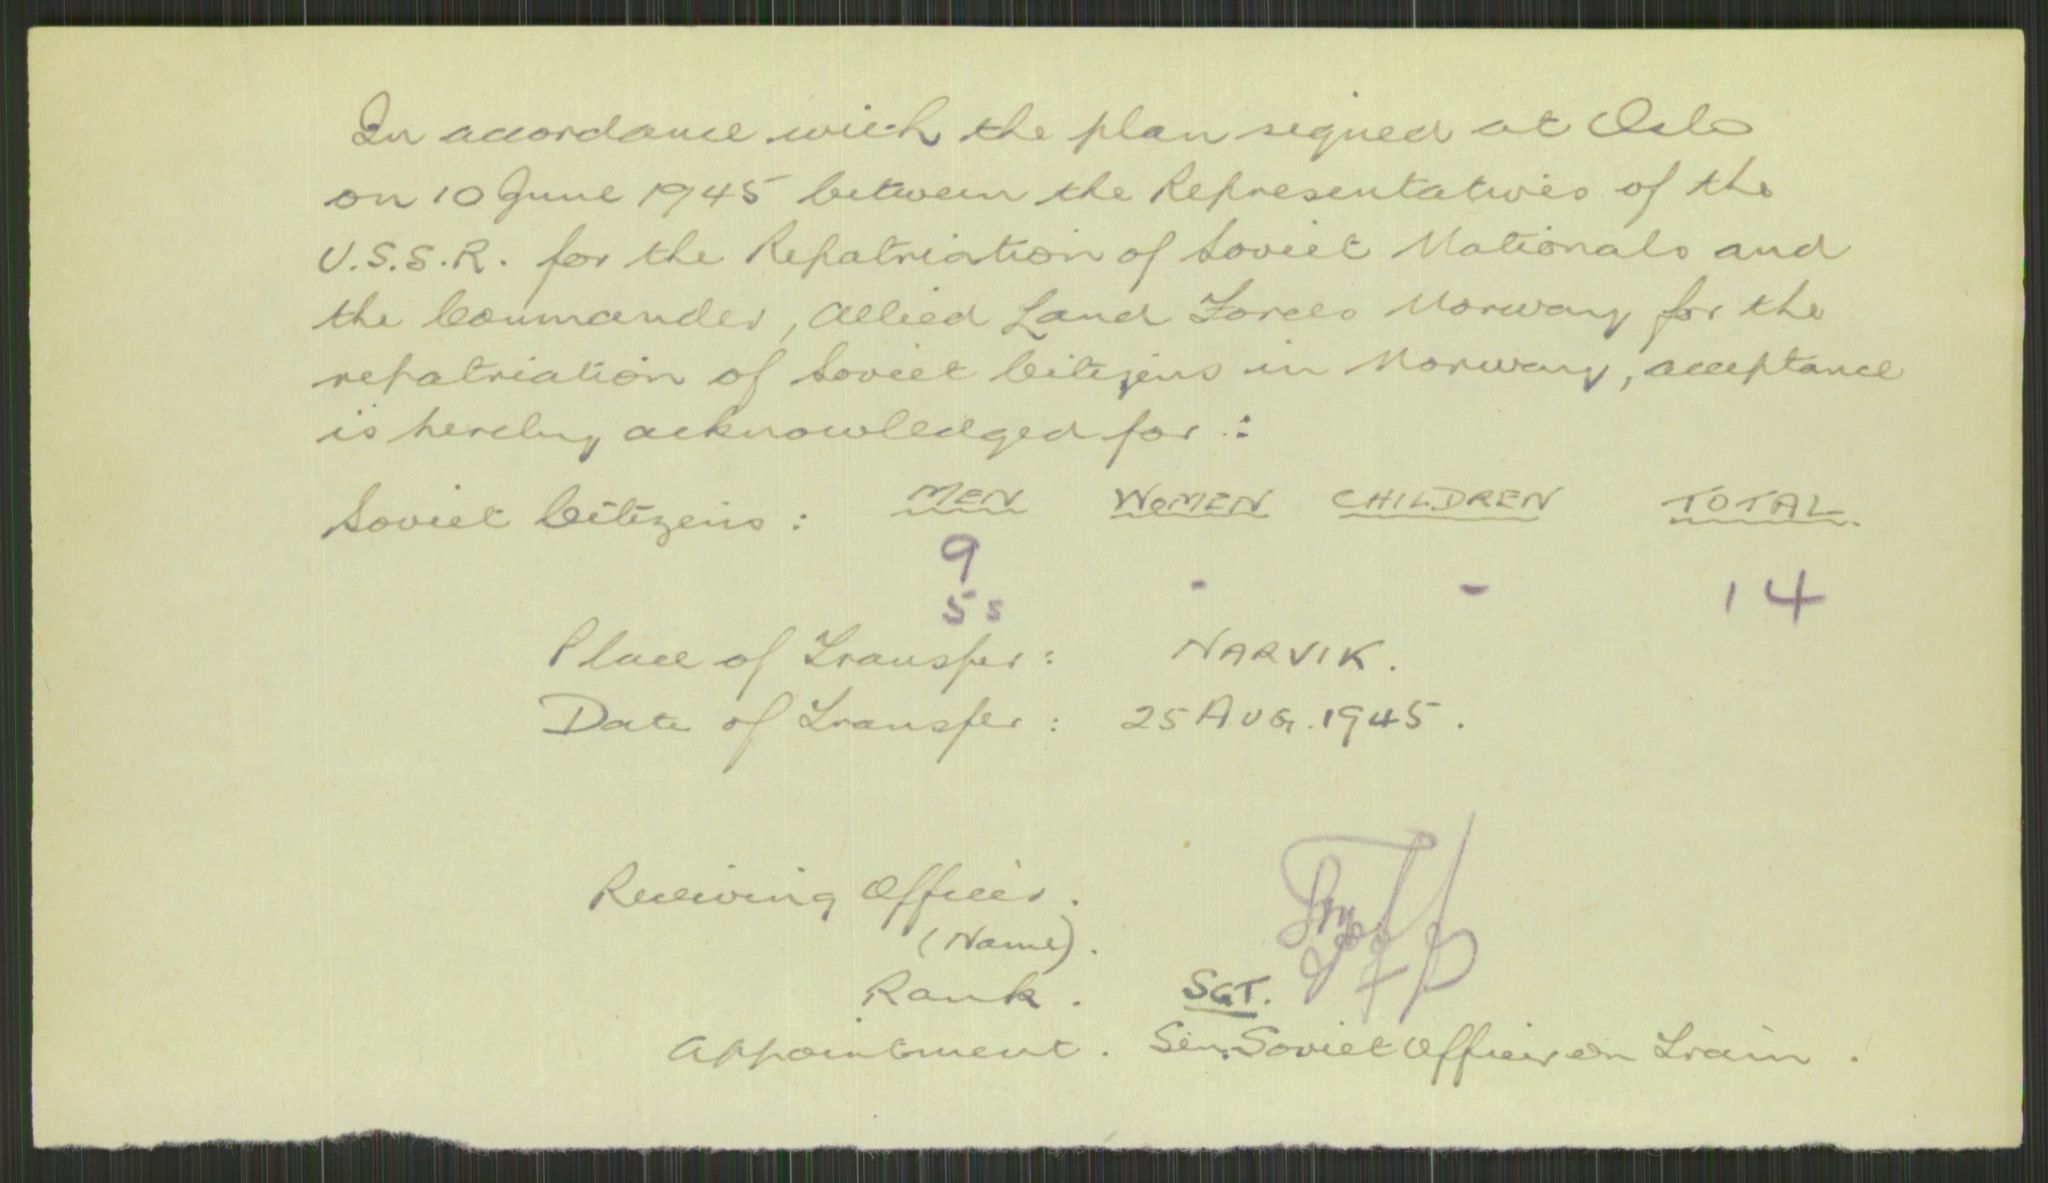 In accordance with the plan signed at Oslo
on 10 June 1945 between the Representatives of the
U.S.S.R. for the Repatriation of Soviet Nationals and
the Commander, Allied Land Forces Norway for the
repatriation of Soviet Citizens in Norway, acceptance
is hereby acknowledged for :
Soviet Citizens : MEN WOMEN CHILDREN TOTAL.
9
5s - - 14
Place of Transfer : NARVIK.
Date of Transfer : 25 AUG. 1945.
Receiving Officer.
(Name).
Rank. SGT.
Appointment. Sen. Soviet Officer on Train.